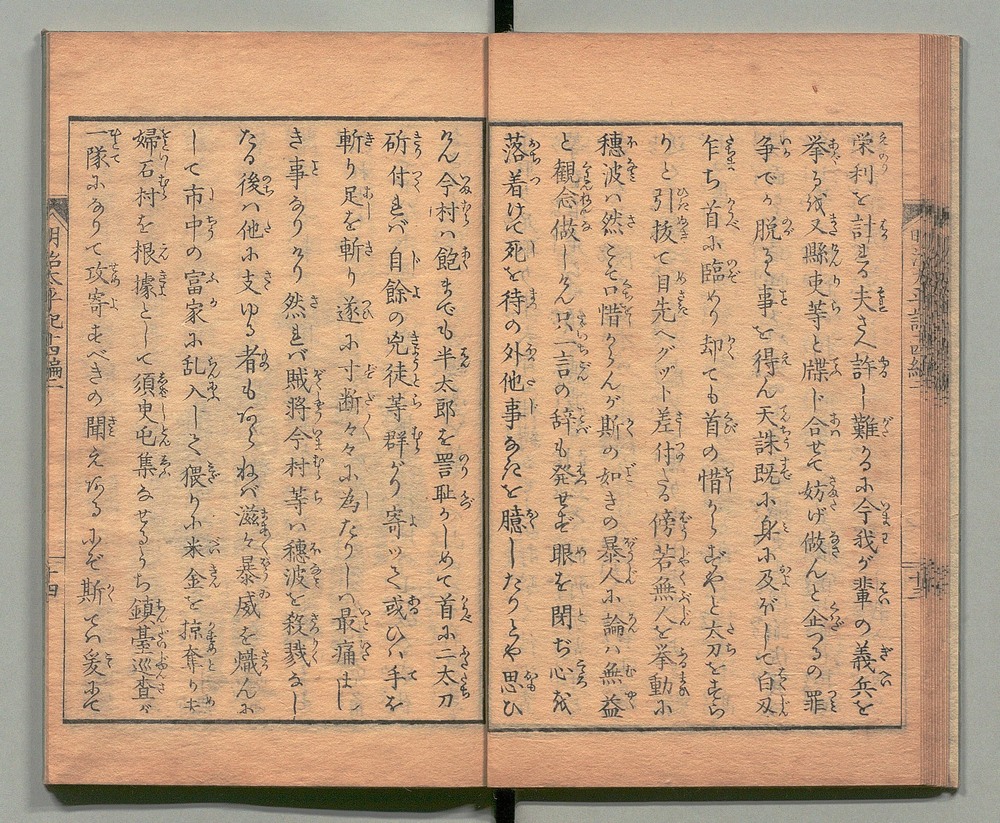 栄利を計る夫さへ許し難かるに今我が輩の義兵を
挙るを又縣吏等と牒じ合せて妨げ做んと企つるの罪
争でか脱るゝ事を得ん天誅既に身に及がして白刄
乍ち首に臨めり却ても首の惜からずやと太刀をすら
りと引抜て目先へグット差付たる傍若無人を挙動に
穂波は然こそ口惜からんが斯の如きの暴人に論ハ無益
と観念做しけん只一言の辞も発せず眼を閉ぢ心を
落着けて死を待の外他事なきを臆したりとや思ひ
けん今村ハ飽までも半太郎を詈耻かしめて首に二太刀
斫付れバ自餘の兇徒等群がり寄ッて或ひハ手を
斬り足を斬り遂に寸断々々に為たりしハ最痛まし
き事なりけり然れバ賊将今村等ハ穂波を殺戮なし
たる後ハ他に支ゆる者もあらねバ滋々暴威を熾んに
して市中の富家に乱入して猥りに米金を掠奪り夫
婦石村を根據として須臾屯集なせるうち鎮臺巡査が
一隊になりて攻寄すべきの聞えあるにぞ斯てハ爰にて
明治太平記十四編二
十四